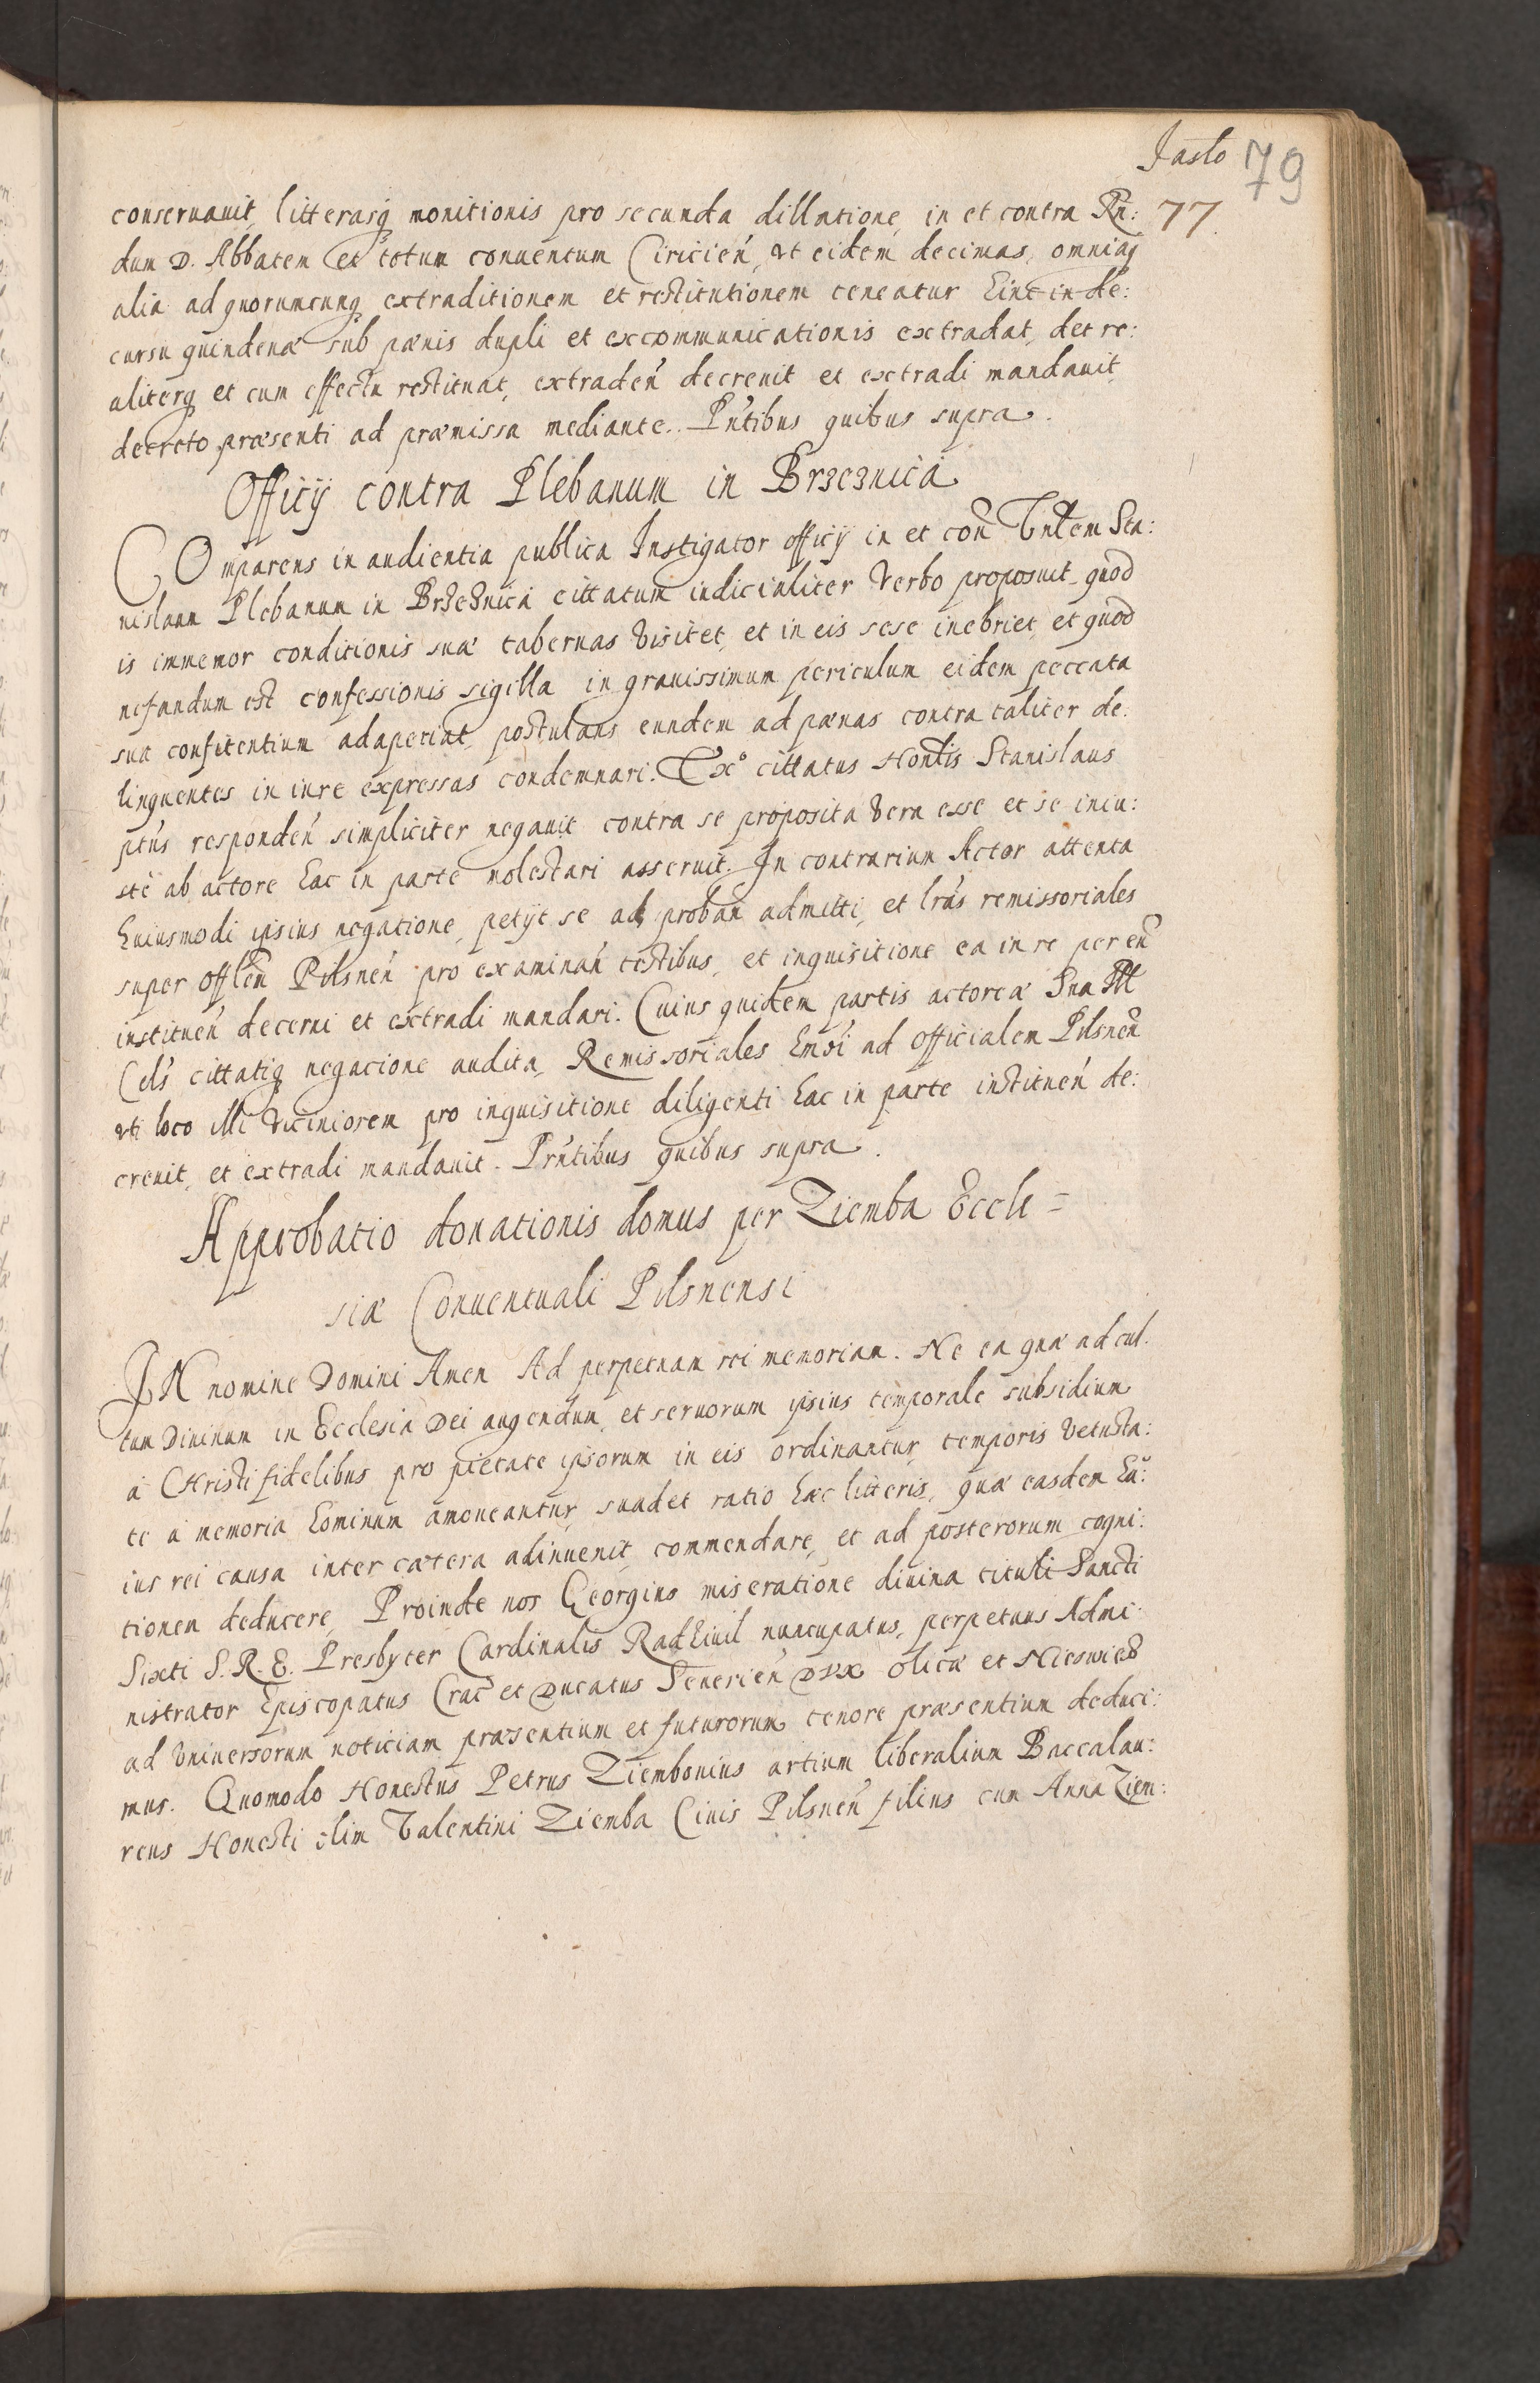 Jasło 79
77.
conseruauit, litterasq́ monitionis pro secunda dillatione, in et contra Rn̄:
dum D. Abbatem et totum conuentum Ciricień, vt eidem decimas, omniaq́
alia ad quorumcunq́ extraditionem et restitutionem teneatur hinc in de:
cursu quindenæ sub pænis dupli et excommunicationis extradat, det re:
aliterq́ et cum effectu restituat, extradeń decreuit et extradi mandauit
decreto præsenti ad præmissa mediante. Pńtibus quibus supra.
Officÿ contra Plebanum in Brzeznica
COmparens in audientia publica Instigator officÿ in et coñ Vnłem Sta:
nislaum Plebanum in Brzeznica cittatum iudicialiter Verbo proposuit, quod
is immemor conditionis suæ tabernas Visitet, et in eis sese inebriet, et quod
nefandum est confessionis sigilla in grauissimum periculum eidem peccata
sua confitentium adaperiat, postulans eundem ad pænas contra taliter de:
linquentes in iure expressas condemnari. Exº cittatus Hontis Stanislaus
ptús respondeń simpliciter negauit contra se proposita Vera esse et se iniu:
stè ab actore hac in parte molestari asseruit. In contrarium Actor attenta
huiusmodi ipsius negatione, petÿt se ad probań admitti, et lrás remissoriales
super Offlem̄ Pilsneń pro examinań testibus, et inquisitione ea in re per eñ
instituen̄ decerni et extradi mandari. Cuius quidem partis actoreæ Sua Ill
Cels̄ cittatiq́ negacione audita, Remissoriales hmói ad Officialem Pilsneñ
vti loco illi Viciniorem pro inquisitione diligenti hac in parte instituen̄ de:
creuit, et extradi mandauit. Prńtibus quibus supra.
Approbatio donationis domus per Ziemba Eccle=
siæ Conuentuali Pilsnensi
IN nomine Domini Amen Ad perpetuam rei memoriam. Ne ea quæ ad cul:
tum Diuinum in Ecclesia Dei augendum, et seruorum ipsius temporale subsidium
à Christi fidelibus pro pietate ipsorum in eis ordinantur, temporis Vetusta:
te à memoria hominum amoueantur, suadet ratio hæc litteris, quæ easdem hu:
ius rei causa inter cætera adinuenit, commendare, et ad posterorum cogni:
tionem deducere, Proinde nos Georgius miseratione diuina tituli Sancti
Sixti S. R. E. Presbyter Cardinalis Radziuil nuncupatus, perpetuus Admi:
nistrator Episcopatus Crac̄ et Ducatus Seuerień DVX Olicæ et Nieswiez
ad Vniuersorum noticiam præsentium et futurorum, tenore præsentium deduci:
mus. Quomodo Honestus Petrus Ziembonius artium liberalium Baccalau:
reus Honesti olim Valentini Ziemba Ciuis Pilsneń filius cum Anna Ziem: